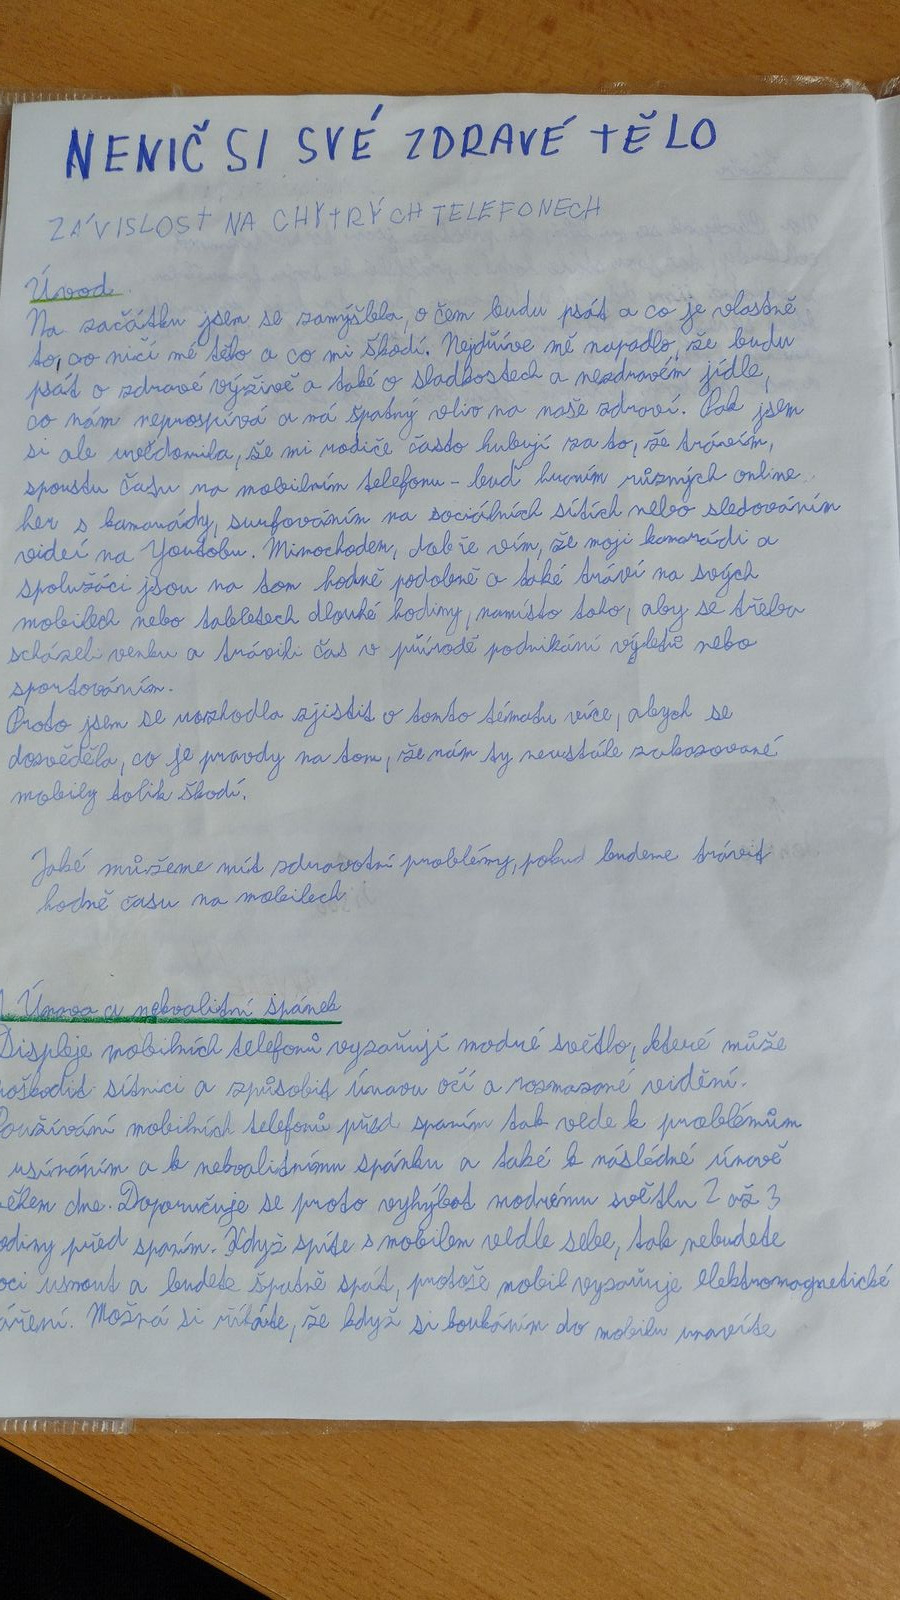 NENIČ SI SVÉ ZDRAVÉ TĚLO
ZÁVISLOST NA CHYTRÝCH TELEFONECH
Úvod
Na začátku jsem se zamýšlela, o čem budu psát a co je vlastně
to, co ničí mé tělo a co mi škodí. Nejdříve mě napadlo, že budu
psát o zdravé výživě a také o sladkostech a nezdravém jídle,
co nám neprospívá a má špatný vliv na naše zdraví. Pak jsem
si ale uvědomila, že mi rodiče často hubují za to, že trávím,
spoustu času na mobilním telefonu - buď hraním různých online
her s kamarády, surfováním na sociálních sítích nebo sledováním
videí na Youtobu. Mimochodem, dobře vím, že moji kamarádi a
spolužáci jsou na tom hodně podobně a také tráví na svých
mobilech nebo tabletech dlouhé hodiny, namísto toho, aby se třeba
scházeli venku a trávili čas v přírodě podnikání výletů nebo
sportováním.
Proto jsem se rozhodla zjistit o tomto tématu více, abych se
dosvěděla, co je pravdy na tom, že nám ty neustále zakazované
mobily tolik škodí.
Jaké můžeme mít zdravotní problémy, pokud budeme trávit
hodně času na mobilech
1. Únava a nekvalitní spánek
Displeje mobilních telefonů vyzařují modré světlo, které může
poškodit sítnici a způsobit únavu očí a rozmazané vidění.
Používání mobilních telefonů před spaním tak vede k problémům
usínáním a k nekvalitnímu spánku a také k následné únavě
během dne. Doporučuje se proto vyhýbat modrému světlu 2 až 3
hodiny před spaním. Když spíte s mobilem vedle sebe, tak nebudete
moci usnout a budete špatně spát, protože mobil vyzařuje elektromagnetické
záření. Možná si říkáte, že když si koukáním do mobilu unavíte